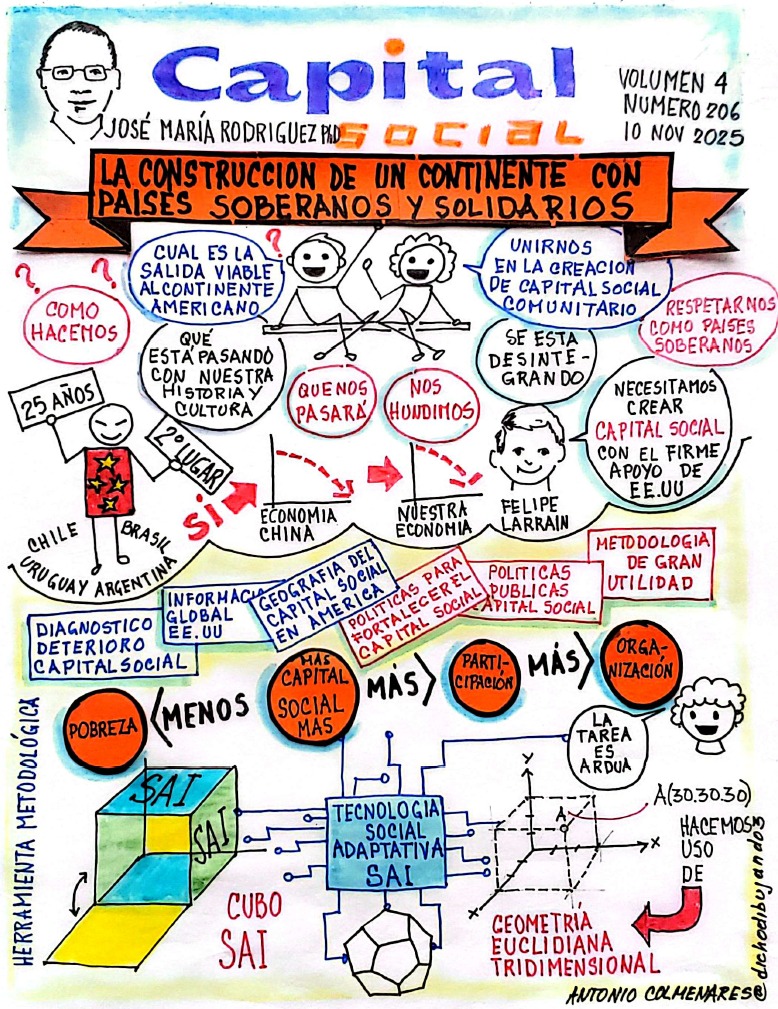 Capital
SOCIAL
JOSÉ MARÍA RODRIGUEZ PhD
VOLUMEN 4
NUMERO 206
10 NOV 2025
LA CONSTRUCCION DE UN CONTINENTE CON
PAISES SOBERANOS Y SOLIDARIOS
? ?
COMO
HACEMOS
?
CUAL ES LA
SALIDA VIABLE
AL CONTINENTE
AMERICANO
UNIRNOS
EN LA CREACION
DE CAPITAL SOCIAL
COMUNITARIO
RESPETARNOS
COMO PAISES
SOBERANOS
QUÉ
ESTÁ PASANDO
CON NUESTRA
HISTORIA Y
CULTURA
QUE NOS
PASARÁ
NOS
HUNDIMOS
SE ESTA
DESINTE-
GRANDO
NECESITAMOS
CREAR
CAPITAL SOCIAL
CON EL FIRME
APOYO DE
EE.UU
25 AÑOS
2º LUGAR
CHILE BRASIL
URUGUAY ARGENTINA
SI
ECONOMIA
CHINA
NUESTRA
ECONOMIA
FELIPE
LARRAIN
DIAGNOSTICO
DETERIORO
CAPITAL SOCIAL
INFORMACIO
GLOBAL
EE.UU
GEOGRAFIA DEL
CAPITAL SOCIAL
EN AMERICA
POLITICAS PARA
FORTALECER EL
CAPITAL SOCIAL
POLITICAS
PUBLICAS
CAPITAL SOCIAL
METODOLOGIA
DE GRAN
UTILIDAD
POBREZA
< MENOS
MAS
CAPITAL
SOCIAL
MAS
MÁS >
PARTI-
CIPACIÓN
MÁS >
ORGA-
NIZACIÓN
LA
TAREA
ES
ARDUA
HERRAMIENTA METODOLÓGICA
SAI
SAI
CUBO
SAI
TECNOLOGIA
SOCIAL
ADAPTATIVA
SAI
Y
A
X
X
A(30.30.30)
HACEMOS
USO
DE
GEOMETRÍA
EUCLIDIANA
TRIDIMENSIONAL
@dichodibujando3
ANTONIO COLMENARES